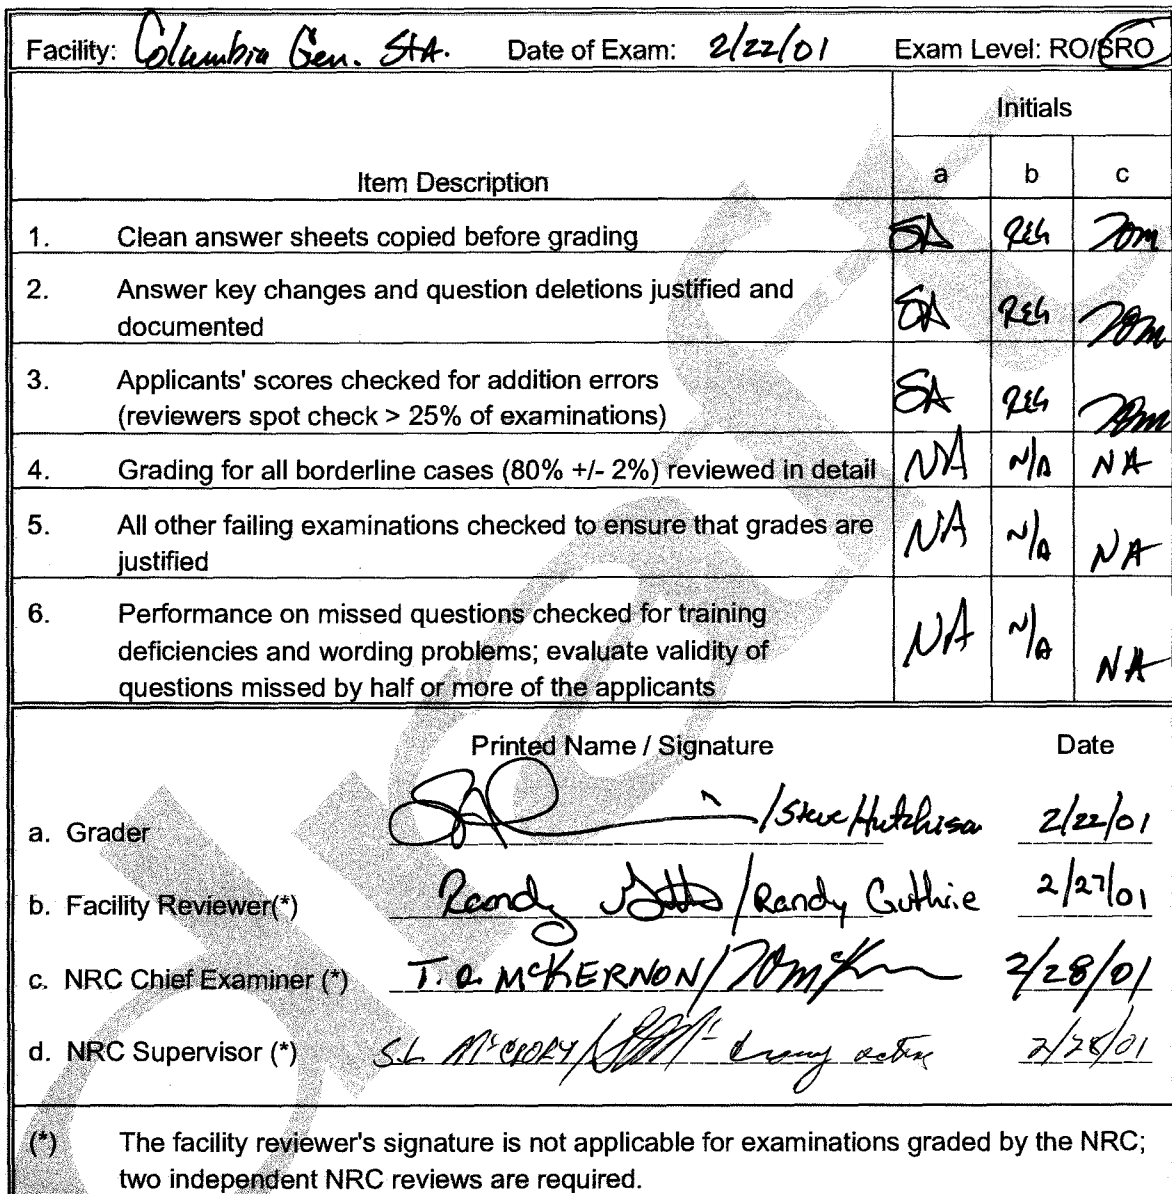 Facility: Columbia Gen. StA. Date of Exam: 2/22/01 Exam Level: RO/SRO
Initials
Item Description a b c
1. Clean answer sheets copied before grading SA REG TOM
2. Answer key changes and question deletions justified and
documented SA REG TOM
3. Applicants' scores checked for addition errors
(reviewers spot check > 25% of examinations) SA REG TOM
4. Grading for all borderline cases (80% +/- 2%) reviewed in detail NA N/A NA
5. All other failing examinations checked to ensure that grades are
justified NA N/A NA
6. Performance on missed questions checked for training
deficiencies and wording problems; evaluate validity of
questions missed by half or more of the applicants NA N/A NA
Printed Name / Signature Date
a. Grader /Steve Hutchison 2/22/01
b. Facility Reviewer(*) Randy /Randy Guthrie 2/27/01
c. NRC Chief Examiner (*) T. O. McKERNON/ 2/28/01
d. NRC Supervisor (*) S.L McCRORY/ 2/28/01
(*) The facility reviewer's signature is not applicable for examinations graded by the NRC;
two independent NRC reviews are required.